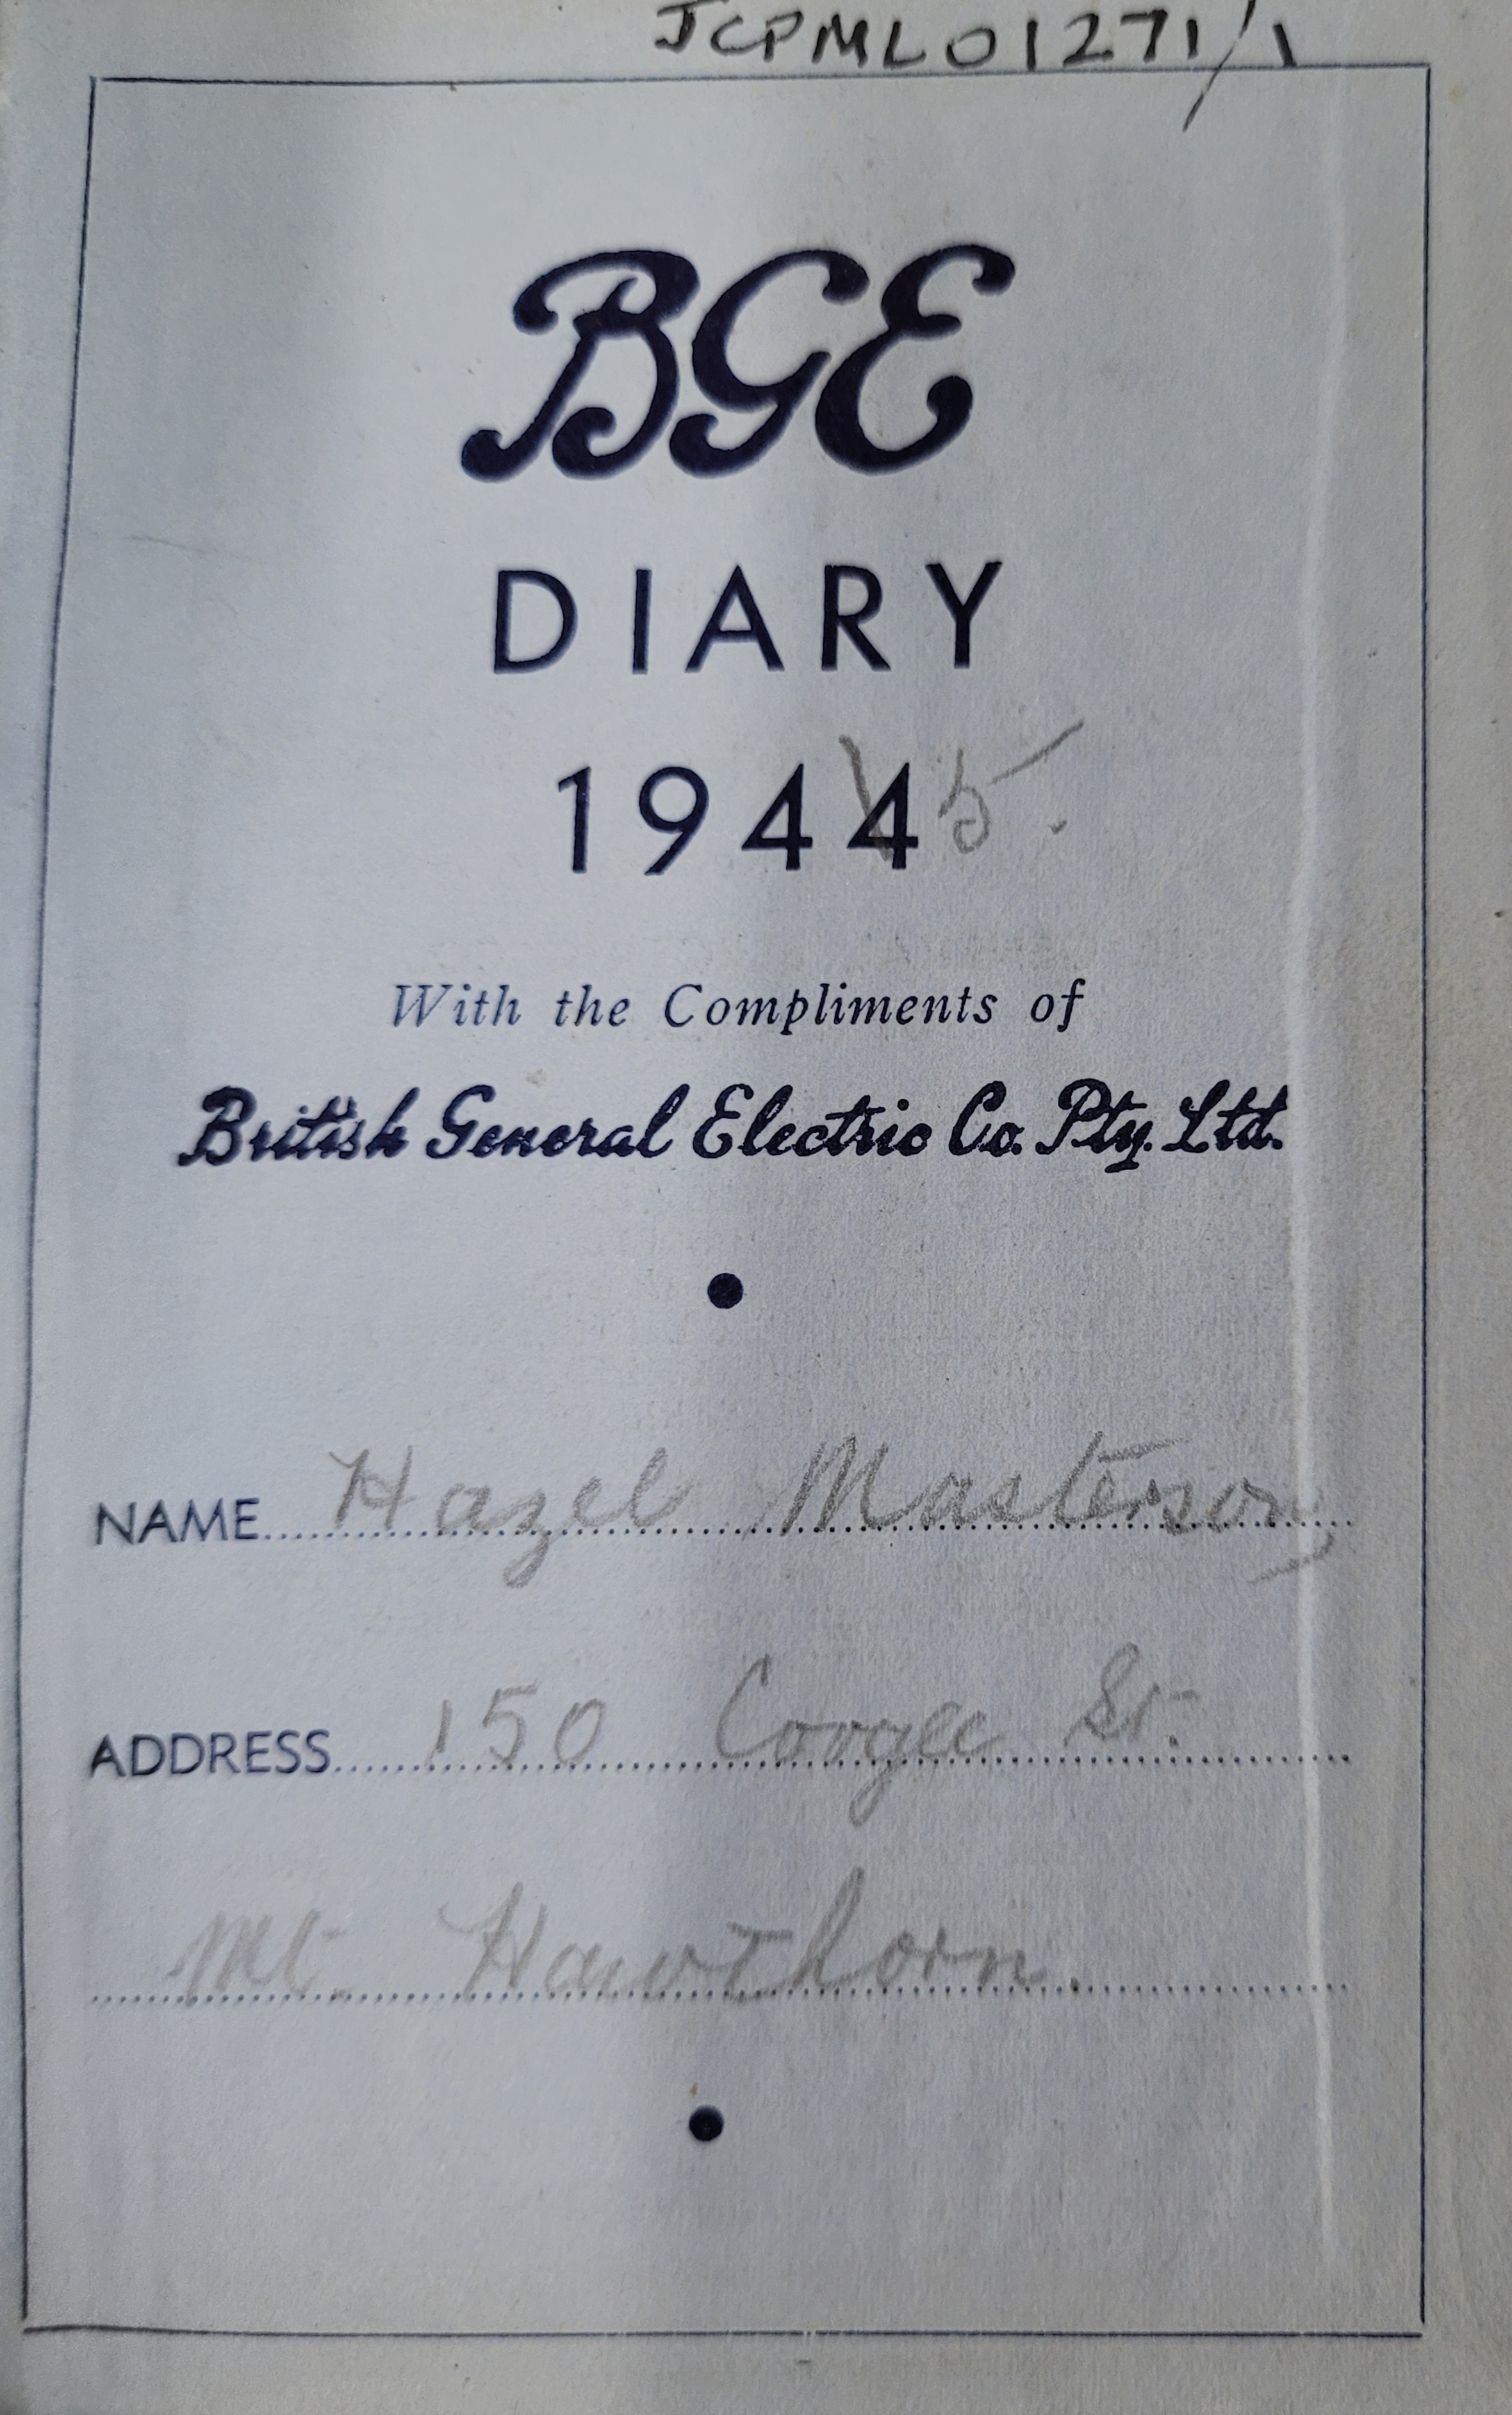 JCPML01271/1
BGE
DIARY
1944 5.
With the Compliments of
British General Electric Co. Pty. Ltd.
NAME Hazel Masterson
ADDRESS 150 Coogee St.
Mt. Hawthorn.